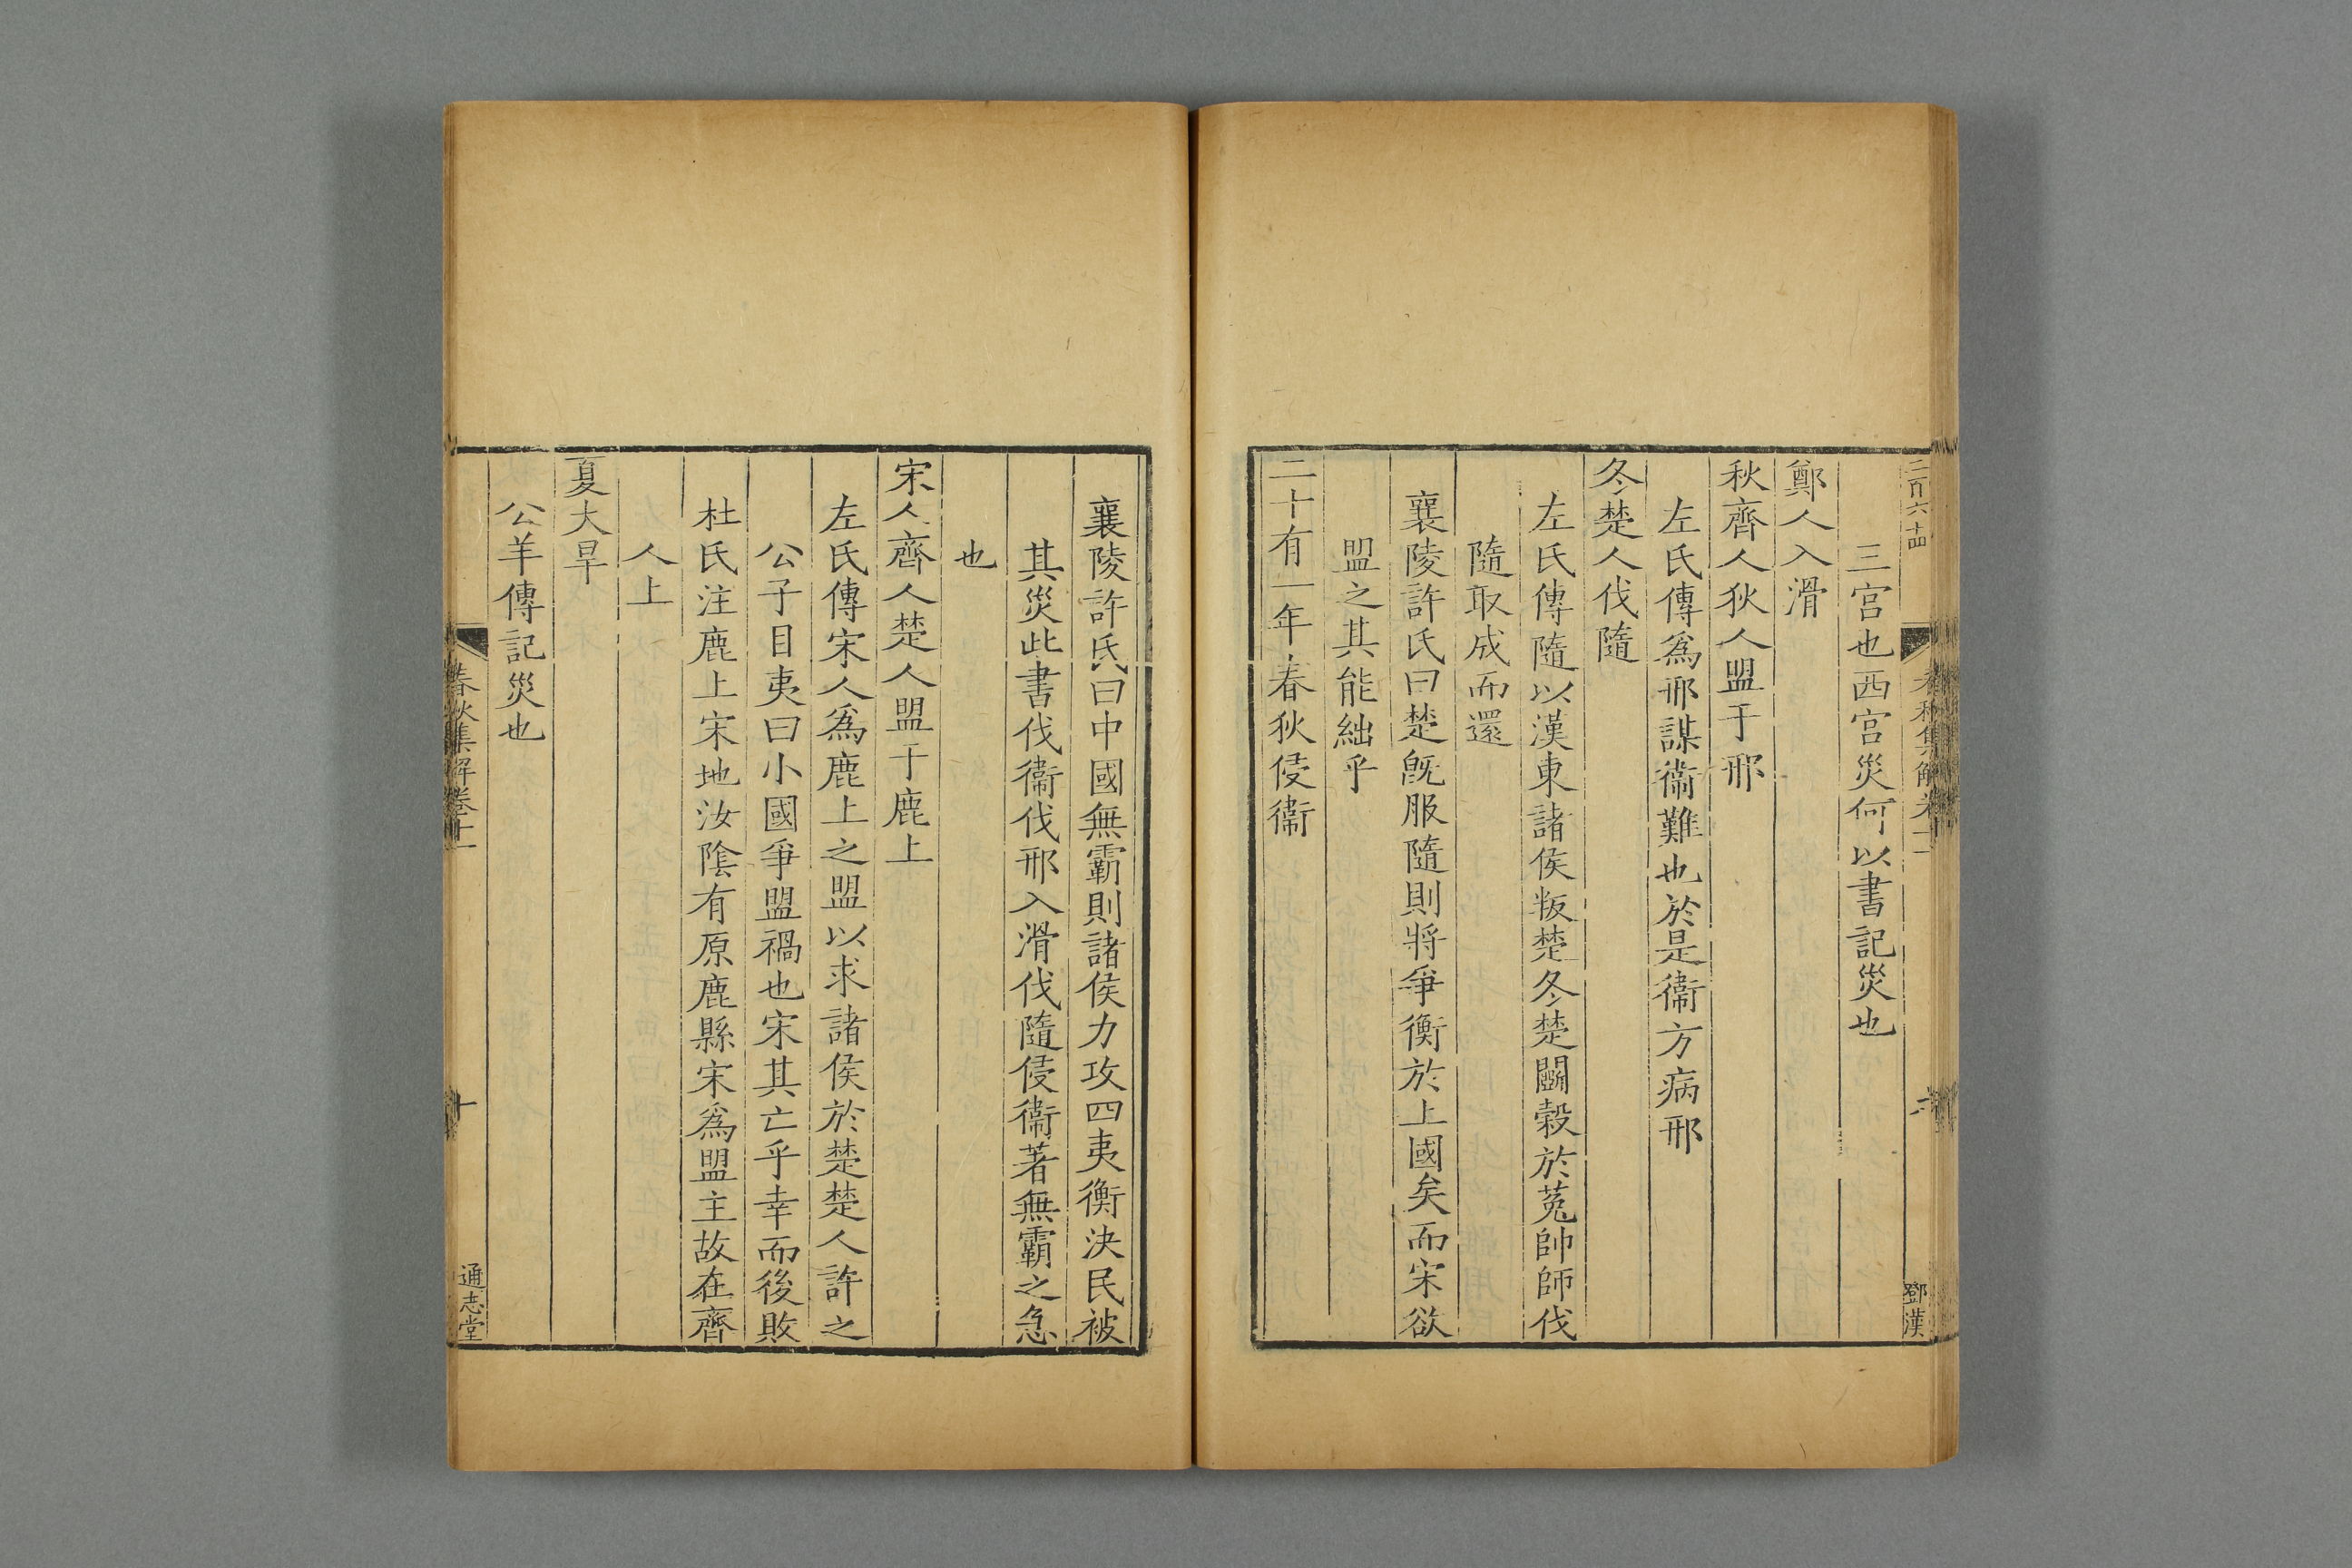 二百六十四
三宫也西宫災何以書記災也
鄭人入滑
秋齊人狄人盟于邢
左氏傳爲邢謀衞難也於是衞方病邢
冬楚人伐隨
左氏傳隨以漢東諸侯叛楚冬楚鬬穀於菟帥師伐
隨取成而還
襄陵許氏曰楚旣服隨則將爭衡於上國矣而宋欲
盟之其能絀乎
二十有一年春狄侵衞
鄧漢
襄陵許氏曰中國無霸則諸侯力攻四夷衡決民被
其災此書伐衞伐邢入滑伐隨侵衞著無霸之急
也
宋人齊人楚人盟于鹿上
左氏傳宋人爲鹿上之盟以求諸侯於楚楚人許之
公子目夷曰小國爭盟禍也宋其亡乎幸而後敗
杜氏注鹿上宋地汝隂有原鹿縣宋爲盟主故在齊
人上
夏大旱
公羊傳記災也
春秋集解卷十一
通志堂